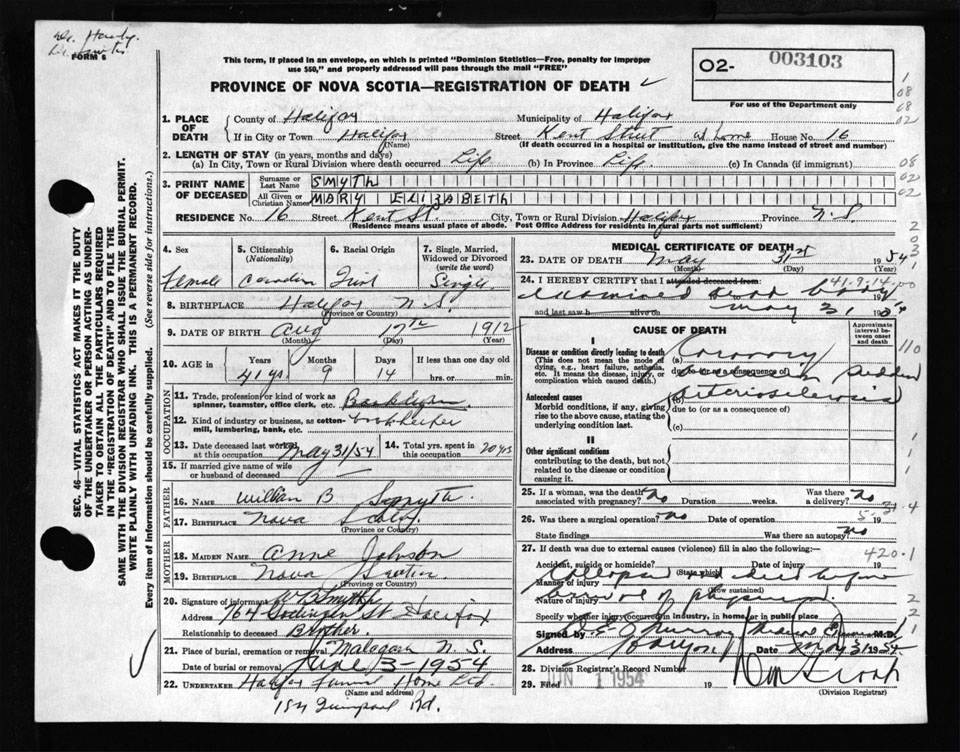 Dr. Hardy
FORM 6
This form, if placed in an envelope, on which is printed "Dominion Statistics—Free, penalty for improper
use $50," and properly addressed will pass through the mail "FREE"
PROVINCE OF NOVA SCOTIA—REGISTRATION OF DEATH
O2- 003103
For use of the Department only
1. PLACE OF DEATH
County of Halifax Municipality of Halifax
If in City or Town Halifax Street Kent Street at home House No. 16
(Name) (If death occurred in a hospital or institution, give the name instead of street and number)
2. LENGTH OF STAY (in years, months and days)
(a) In City, Town, or Rural Division where death occurred Life (b) In Province Life (c) In Canada (if immigrant)
3. PRINT NAME OF DECEASED
Surname or Last Name SMYTH
All Given or Christian Names MARY ELIZABETH
RESIDENCE No. 16 Street Kent St. City, Town or Rural Division Halifax Province N.S
(Residence means usual place of abode. Post Office Address for residents in rural parts not sufficient)
4. Sex Female
5. Citizenship (Nationality) Canadian
6. Racial Origin Irish
7. Single, Married, Widowed or Divorced (write the word) Single
8. BIRTHPLACE Halifax N.S.
(Province or Country)
9. DATE OF BIRTH Aug 17th 1912
(Month) (Day) (Year)
10. AGE in Years 41 yrs Months 9 Days 14 If less than one day old
hrs. or min.
OCCUPATION
11. Trade, profession or kind of work as
spinner, teamster, office clerk, etc.
12. Kind of industry or business, as cotton-
mill, lumbering, bank, etc. bookkeeper
13. Date deceased last worked at this occupation May 31/54
14. Total yrs. spent in this occupation 20 yrs
15. If married give name of wife
or husband of deceased
FATHER
16. NAME William B Smyth
17. BIRTHPLACE Nova Scotia
(Province or Country)
MOTHER
18. MAIDEN NAME Anne Johnson
19. BIRTHPLACE Nova Scotia
(Province or Country)
20. Signature of informant W B Smyth
Address 764 Gottingen St Halifax
Relationship to deceased Brother.
21. Place of burial, cremation or removal Malagash N.S.
Date of burial or removal June 3-1954
22. UNDERTAKER Halifax Funeral Home Ltd.
(Name and address)
Rd.
MEDICAL CERTIFICATE OF DEATH
23. DATE OF DEATH May 31st 1954
(Month) (Day) (Year)
24. I HEREBY CERTIFY that I attended deceased from: 41-9-14
examined dead body 19
and last saw h alive on May 31, 1954
CAUSE OF DEATH
Approximate interval between onset and death
I
Disease or condition directly leading to death
(This does not mean the mode of dying, e.g., heart failure, asthenia, etc. It means the disease, injury, or complication which caused death.)
(a) Coronary
due to (or as a consequence of) Sudden
Antecedent causes
Morbid conditions, if any, giving rise to the above cause, stating the underlying condition last.
(b) Arteriosclerosis
due to (or as a consequence of)
(c)
II
Other significant conditions
contributing to the death, but not related to the disease or condition causing it.
25. If a woman, was the death associated with pregnancy? no Duration weeks. Was there a delivery? no
26. Was there a surgical operation? no Date of operation 19
State findings Was there an autopsy? no
27. If death was due to external causes (violence) fill in also the following:—
Accident, suicide or homicide? 420.1
(State which)
Manner of injury Collapsed and died before
(How sustained)
Nature of injury arrival of physician
Specify whether injury occurred in industry, in home or in public place
Signed by E Murray M.D.
Address Date May 31 1954
28. Division Registrar's Record Number
29. Filed JUN 1 1954 19
(Division Registrar)
SEC. 46—VITAL STATISTICS ACT MAKES IT THE DUTY
OF THE UNDERTAKER OR PERSON ACTING AS UNDER-
TAKER TO OBTAIN ALL THE PARTICULARS REQUIRED
IN THE "REGISTRATION OF DEATH" AND TO FILE THE
SAME WITH THE DIVISION REGISTRAR WHO SHALL ISSUE THE BURIAL PERMIT.
WRITE PLAINLY WITH UNFADING INK. THIS IS A PERMANENT RECORD.
Every item of information should be carefully supplied. (See reverse side for instructions.)